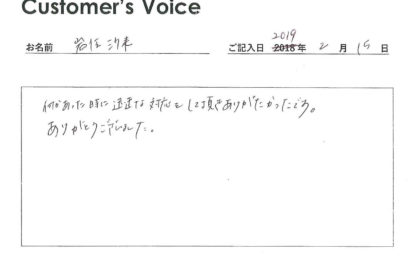 Customer's Voice
2019
お名前 岩任 汐来 ご記入日 2018年 2月15日
何かあった時に迅速な対応をして頂きありがたかったです。
ありがとうございました。